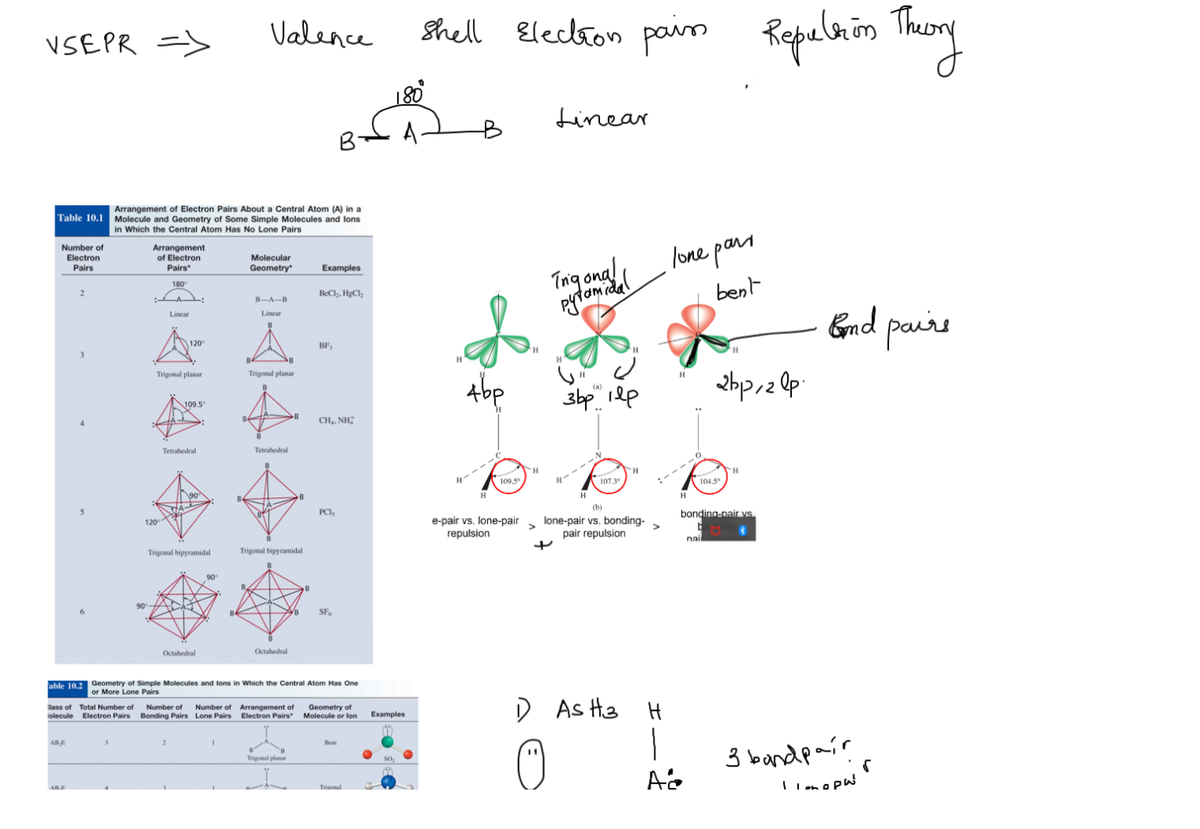 VSEPR => Valence Shell Electron pairs Repulsion Theory
180°
B A B Linear
Table 10.1 Arrangement of Electron Pairs About a Central Atom (A) in a
Molecule and Geometry of Some Simple Molecules and Ions
in Which the Central Atom Has No Lone Pairs
Number of Electron Pairs Arrangement of Electron Pairs* Molecular Geometry* Examples
2 180° :—A—: B—A—B BeCl2, HgCl2
Linear Linear
3 120° A B A B B BF3
Trigonal planar Trigonal planar
4 109.5° A B B A B B CH4, NH4+
Tetrahedral Tetrahedral
5 90° 120° A B B A B B B PCl5
Trigonal bipyramidal Trigonal bipyramidal
6 90° 90° A B B B A B B B SF6
Octahedral Octahedral
lone pair
Trigonal
pyramidal
bent
Bond pairs
H H H H H H H
4bp
(a)
3bp 1lp
2bp, 2 lp.
H C H H H 109.5°
N H H H 107.3°
O H H 104.5°
(b)
e-pair vs. lone-pair
repulsion
>
+
lone-pair vs. bonding-
pair repulsion
>
bonding-pair vs.
Table 10.2 Geometry of Simple Molecules and Ions in Which the Central Atom Has One
or More Lone Pairs
Class of Molecule Total Number of Electron Pairs Number of Bonding Pairs Number of Lone Pairs Arrangement of Electron Pairs* Geometry of Molecule or Ion Examples
AB2E 3 2 1 A B B Bent SO2
Trigonal planar
1) AsH3 H
As
3 bondpair